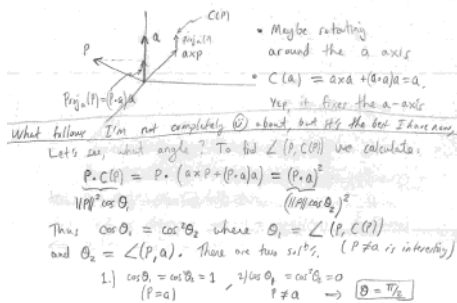 C(P)
P
a
a×p
Proj_a(P)=(P·a)a
• Maybe rotating
around the a axis
• C(a) = a×a + (a·a)a = a,
Yep, it fixes the a-axis
What follows I'm not completely ☺ about, but it's the best I have now,
Let's see, what angle? To find ∠(P,C(P)) we calculate:
P·C(P) = P·(a×P+(P·a)a) = (P·a)²
||P||² cosθ₁ (||P|| cosθ₂)²
Thus cosθ₁ = cos²θ₂ where θ₁ = ∠(P, C(P))
and θ₂ = ∠(P,a). There are two solⁿs. (P≠a is interesting)
1.) cosθ₁ = cos²θ₂ = 1 , 2) cosθ₁ = cos²θ₂ = 0
(P=a) P≠a → θ = π/2